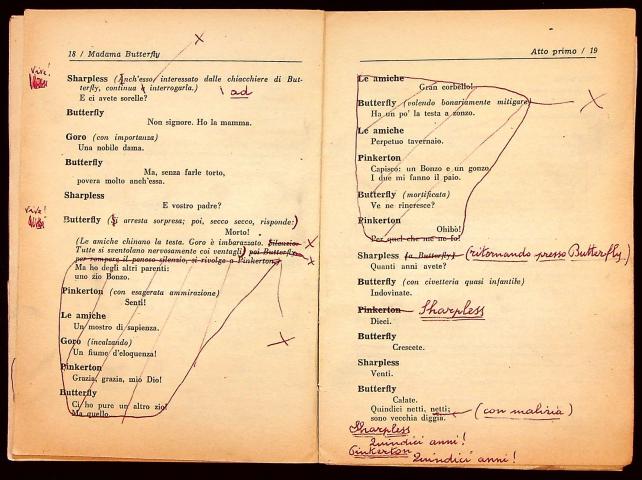 18 / Madama Butterfly
Sharpless (Anch'esso, interessato dalle chiacchiere di But-
terfly, continua a interrogarla.)
ad
E ci avete sorelle?
Butterfly
Non signore. Ho la mamma.
Goro (con importanza)
Una nobile dama.
Butterfly
Ma, senza farle torto,
povera molto anch'essa.
Sharpless
E vostro padre?
Butterfly (Si arresta sorpresa; poi, secco secco, risponde:)
Morto!
(Le amiche chinano la testa. Goro è imbarazzato. Silenzio.
Tutte si sventolano nervosamente coi ventagli; poi Butterfly,
per rompere il penoso silenzio, si rivolge a Pinkerton:)
Ma ho degli altri parenti:
uno zio Bonzo.
Pinkerton (con esagerata ammirazione)
Senti!
Le amiche
Un mostro di sapienza.
Goro (incalzando)
Un fiume d'eloquenza!
Pinkerton
Grazia, grazia, mio Dio!
Butterfly
Ci ho pure un altro zio!
Ma quello...
Atto primo / 19
Le amiche
Gran corbello!
Butterfly (volendo bonariamente mitigare)
Ha un po' la testa a zonzo.
Le amiche
Perpetuo tavernaio.
Pinkerton
Capisco: un Bonzo e un gonzo.
I due mi fanno il paio.
Butterfly (mortificata)
Ve ne rincresce?
Pinkerton
Ohibò!
Per quel che me ne fo!
Sharpless (a Butterfly) (ritornando presso Butterfly.)
Quanti anni avete?
Butterfly (con civetteria quasi infantile)
Indovinate.
Pinkerton Sharpless
Dieci.
Butterfly
Crescete.
Sharpless
Venti.
Butterfly
Calate.
Quindici netti, netti; (con malizia)
sono vecchia diggià.
Sharpless
Quindici anni!
Pinkerton
Quindici anni!